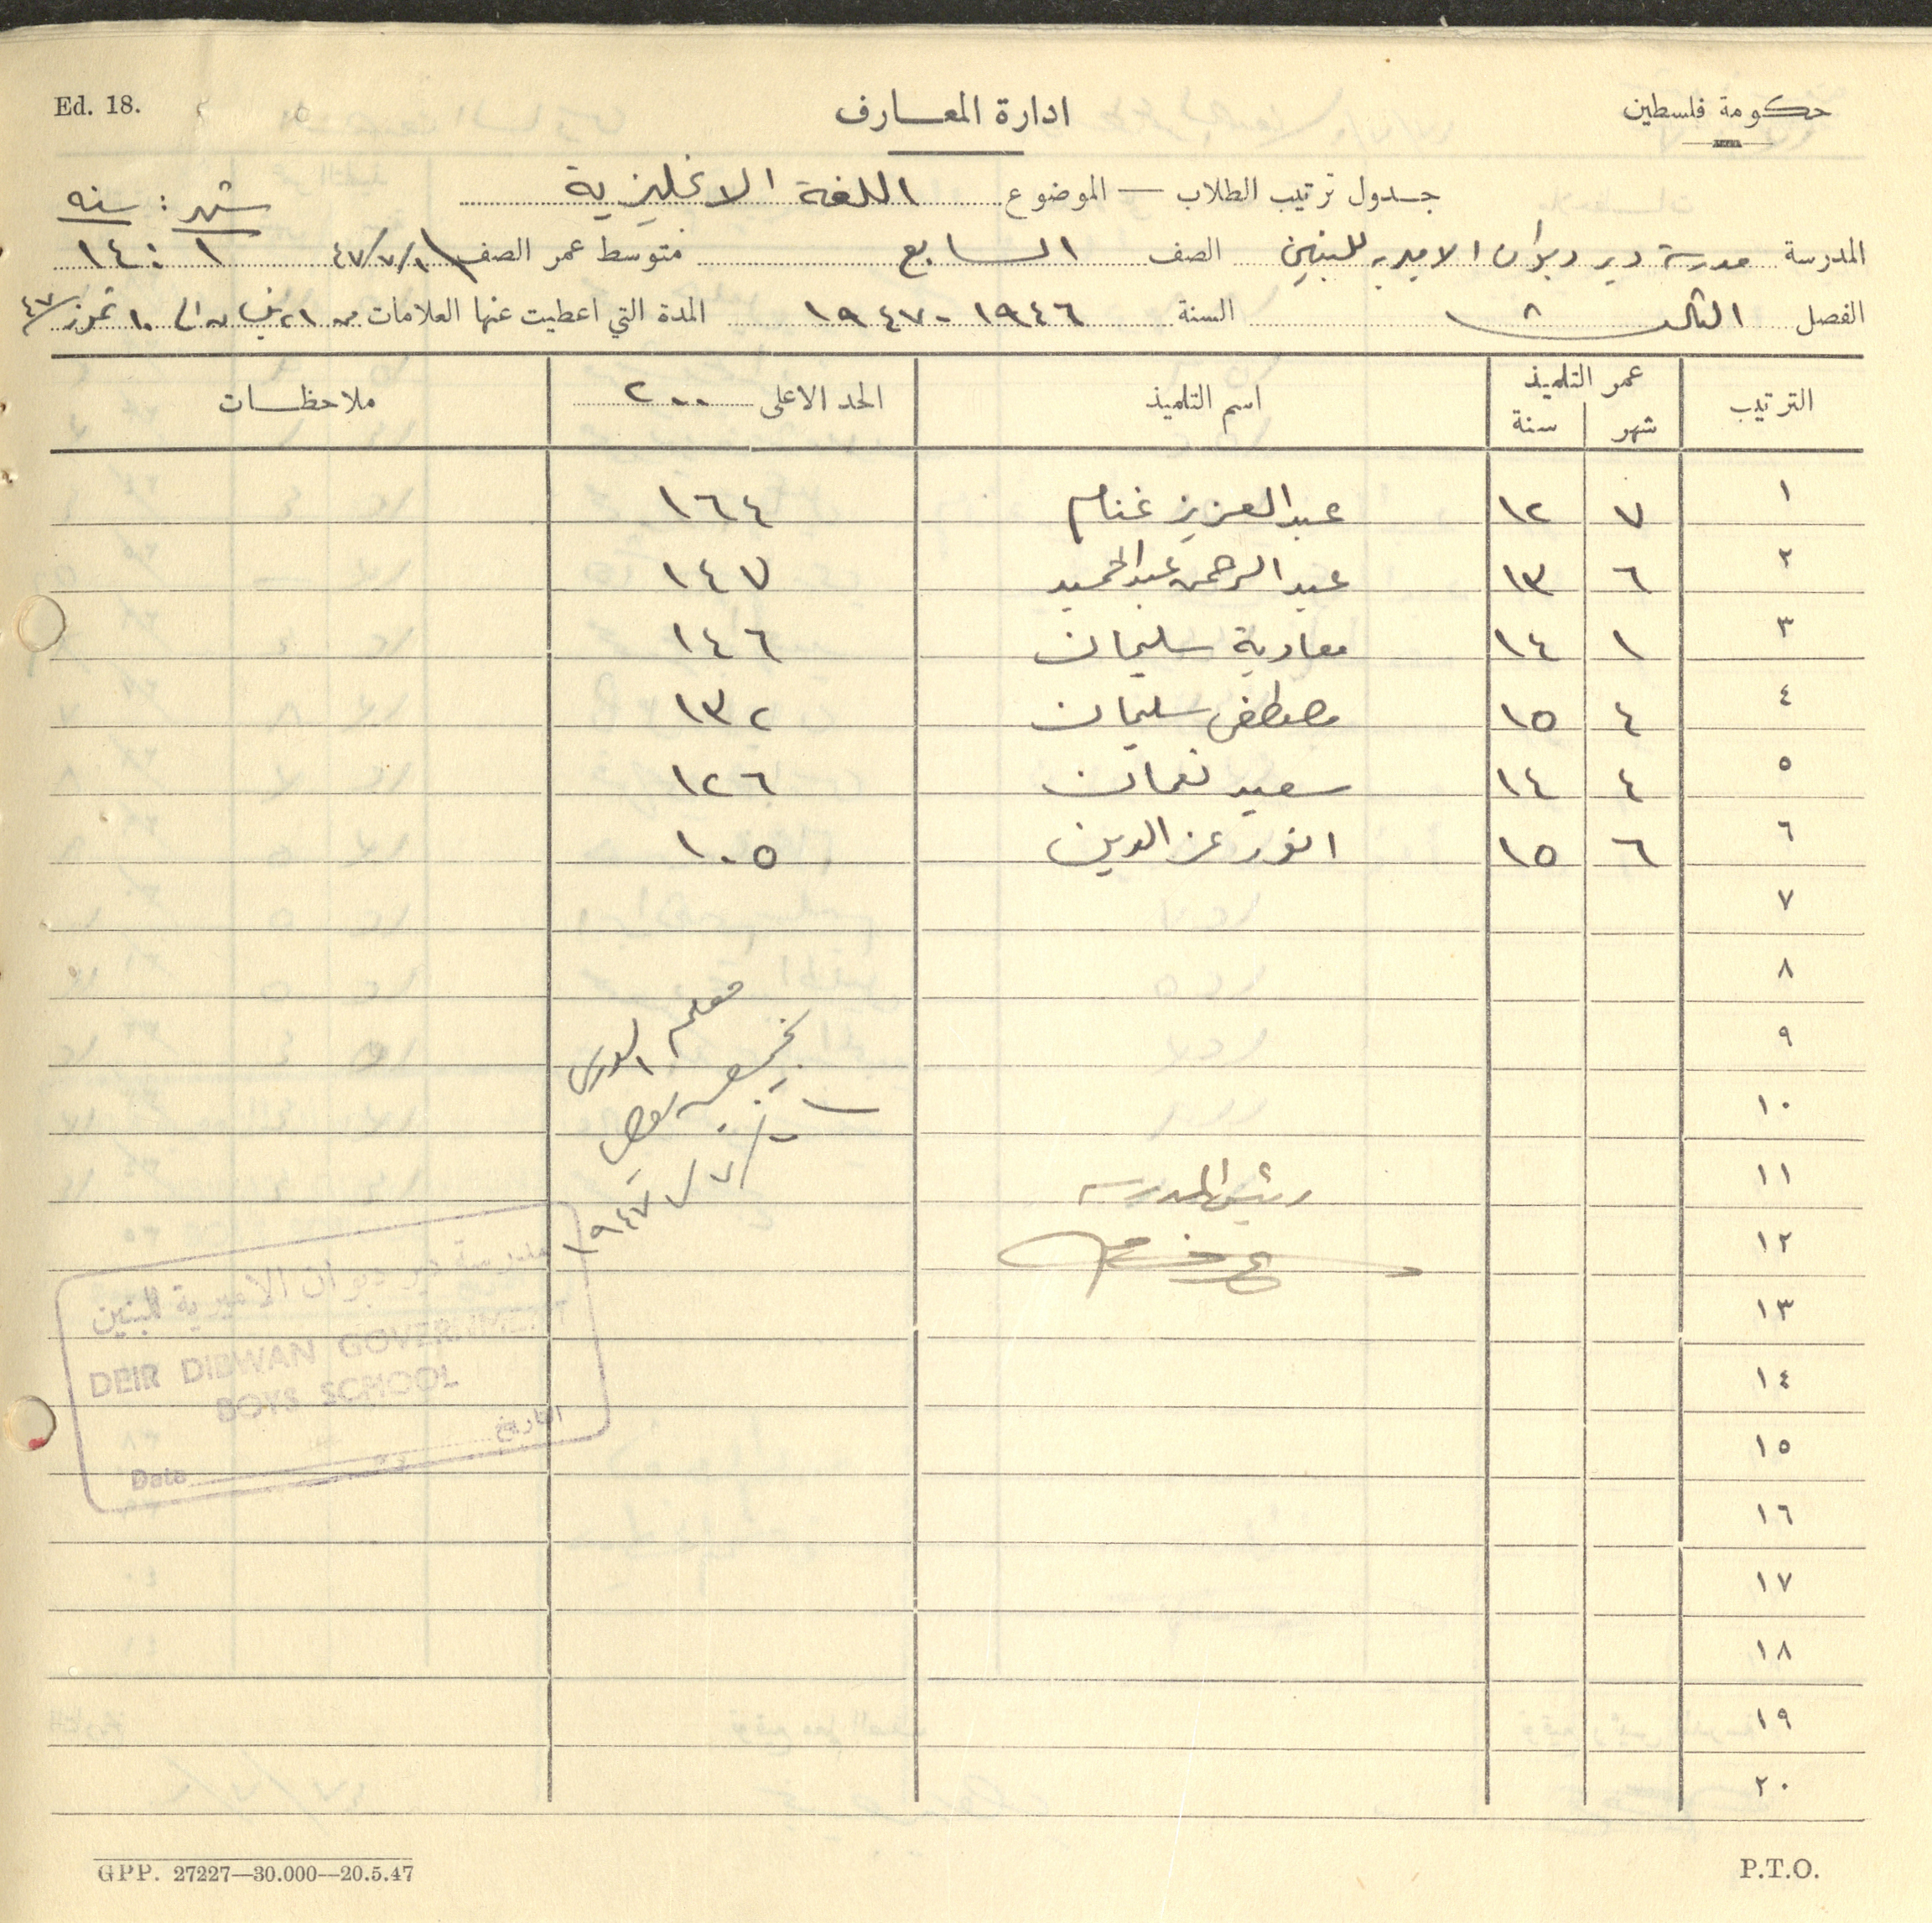 Ed. 18.
ادارة المعارف
حكومة فلسطين
جدول ترتيب الطلاب — الموضوع اللغة الانجليزية
شهر : سنه
المدرسة مدرسة دير دبوان الاميريه للبنين الصف السابع متوسط عمر الصف ٤٧/٧/١ ١ : ١٤
الفصل الثالث السنة ١٩٤٦-١٩٤٧ المدة التي اعطيت عنها العلامات من ٢١ نيسان الى ١٠ تموز/٤٧
الترتيب عمر التلميذ اسم التلميذ الحد الاعلى ٢٠٠ ملاحظات
شهر سنة
١ ٧ ١٢ عبد العزيز غنام ١٦٤
٢ ٦ ١٣ عبد الرحمن عبد الحميد ١٤٧
٣ ١ ١٤ معاوية سليمان ١٤٦
٤ ٤ ١٥ مصطفى سليمان ١٣٢
٥ ٤ ١٤ سعيد نعمان ١٢٦
٦ ٦ ١٥ انور عز الدين ١٠٥
٧
٨
٩
١٠
١١
١٢
١٣
١٤
١٥
١٦
١٧
١٨
١٩
٢٠
معلم الدرس
١٩٤٧
رئيس المدرسه
مدرسة دير دبوان الاميرية للبنين
DEIR DIBWAN GOVERNMENT
BOYS SCHOOL
Date التاريخ
GPP. 27227—30.000—20.5.47
P.T.O.